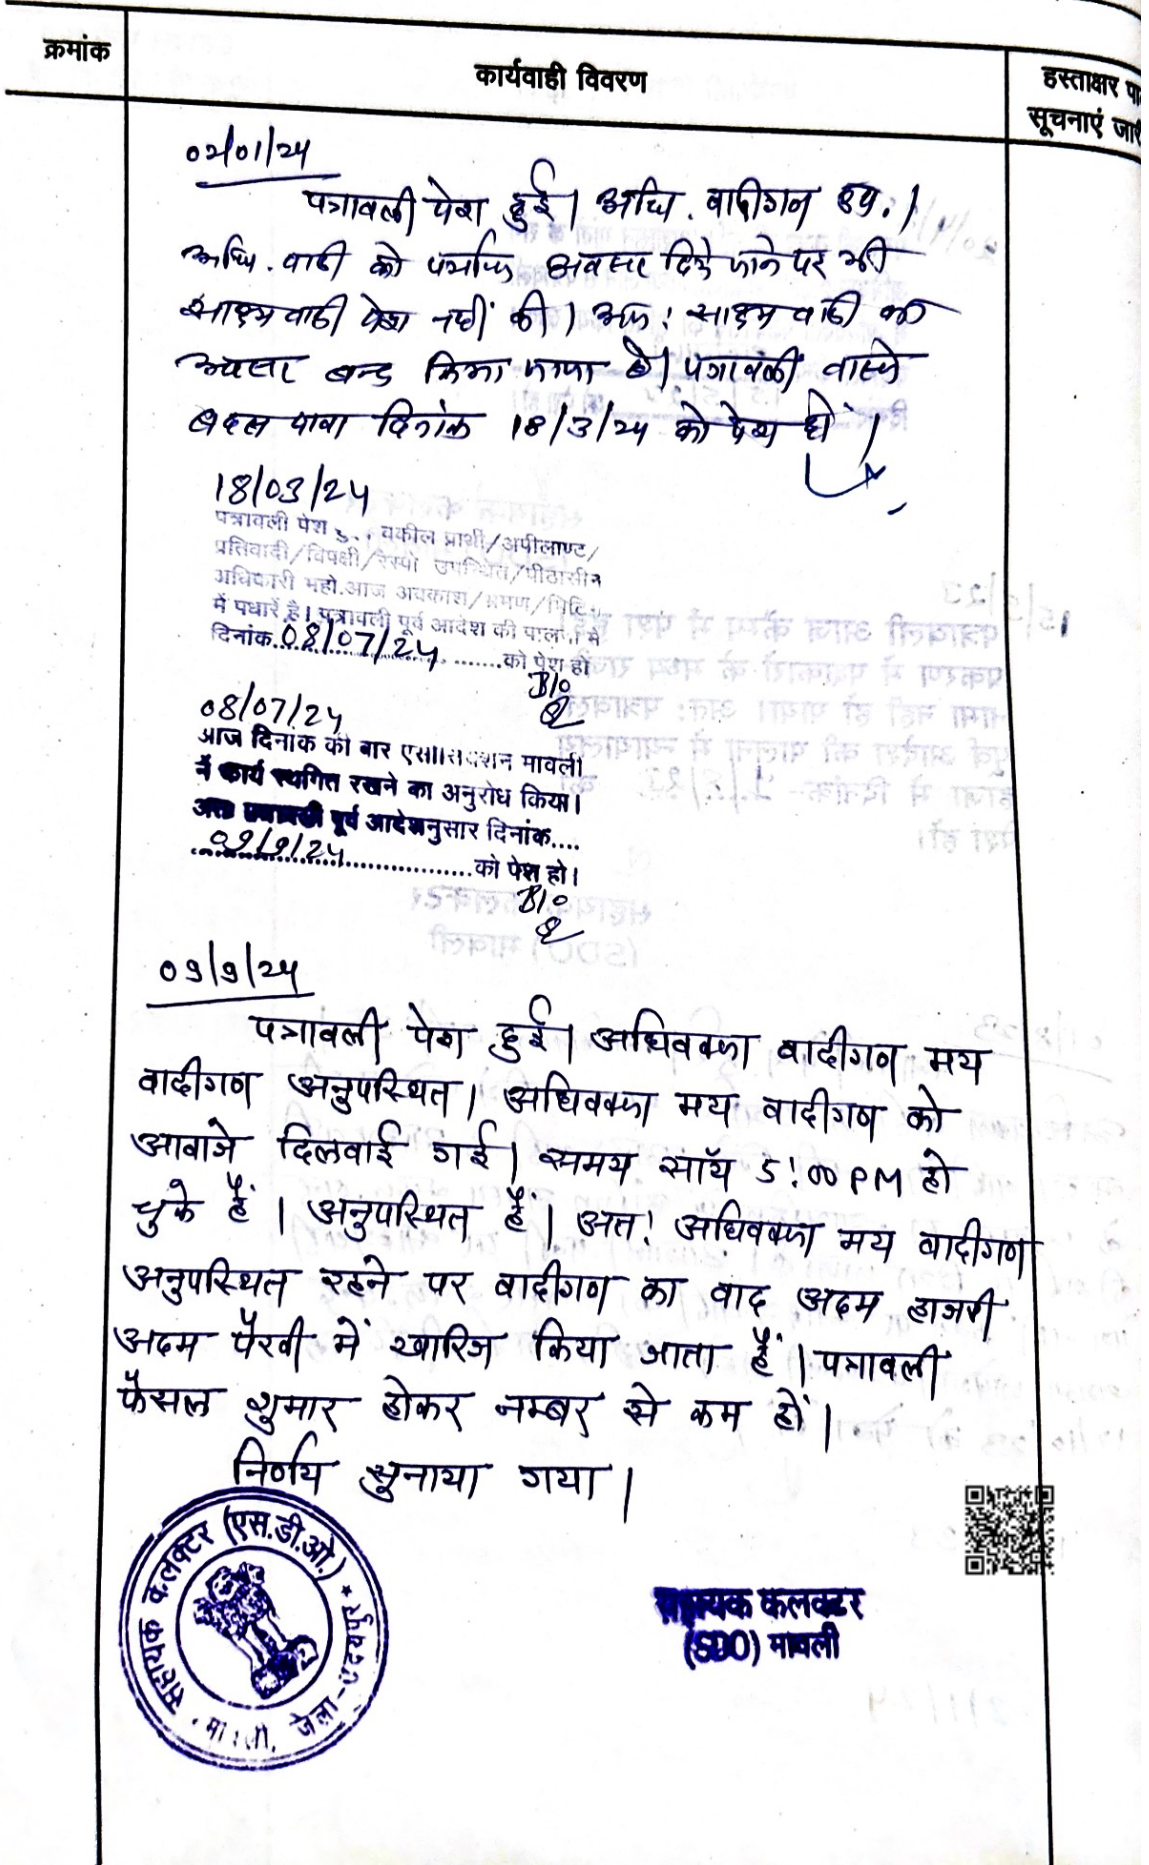 क्रमांक
कार्यवाही विवरण
हस्ताक्षर पा
सूचनाएं जारी
02/01/24
पत्रावली पेश हुई। अधि. वादीगन उप.।
अधि. वादी को पर्याप्त अवसर दिये जाने पर भी
साक्ष्य वादी पेश नहीं की। अतः साक्ष्य वादी का
अवसर बन्द किया जाता है। पत्रावली वास्ते
बहस वावा दिनांक 18/3/24 को पेश हो।
18/03/24
पत्रावली पेश वकील प्रार्थी/अपीलाण्ट/
प्रतिवादी/विपक्षी/रेस्पो उपस्थित/पीठासीन
अधिकारी महो.आज अवकाश/भ्रमण/मिटिं
में पधारें है। पत्रावली पूर्व आदेश की पालना में
दिनांक..08/07/24........को पेश हो
B/o
08/07/24
आज दिनांक को बार एसोसिएशन मावली
ने कार्य स्थगित रखने का अनुरोध किया।
अतः पत्रावली पूर्व आदेशनुसार दिनांक....
09/9/24..................को पेश हो।
B/o
09/9/24
पत्रावली पेश हुई। अधिवक्ता वादीगण मय
वादीगण अनुपस्थित। अधिवक्ता मय वादीगण को
आवाजे दिलवाई गई। समय सॉय 5:00 PM हो
चुके हैं। अनुपस्थित हैं। अतः अधिवक्ता मय वादीगण
अनुपस्थित रहने पर वादीगण का वाद अदम हाजरी
अदम पैरवी में खारिज किया जाता हैं। पत्रावली
फैसल शुमार होकर नम्बर से कम हों।
निर्णय सुनाया गया।
सहायक कलक्टर (एस.डी.ओ.) * जिला-उदयपुर
सहायक कलक्टर
(SDO) मावली